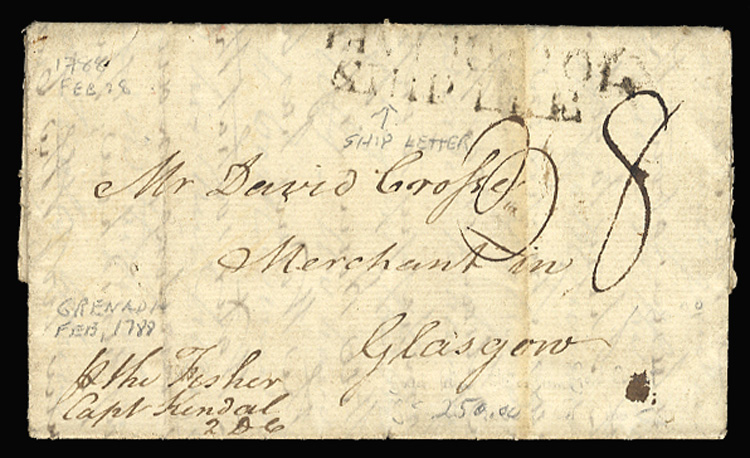 1788
FEB, 28
SHIP LRE
↑
SHIP LETTER
8
Mr David Crosse
Merchant in
Glasgow
GRENADA
FEB, 1788
the Fisher
Capt Kendal
250.00